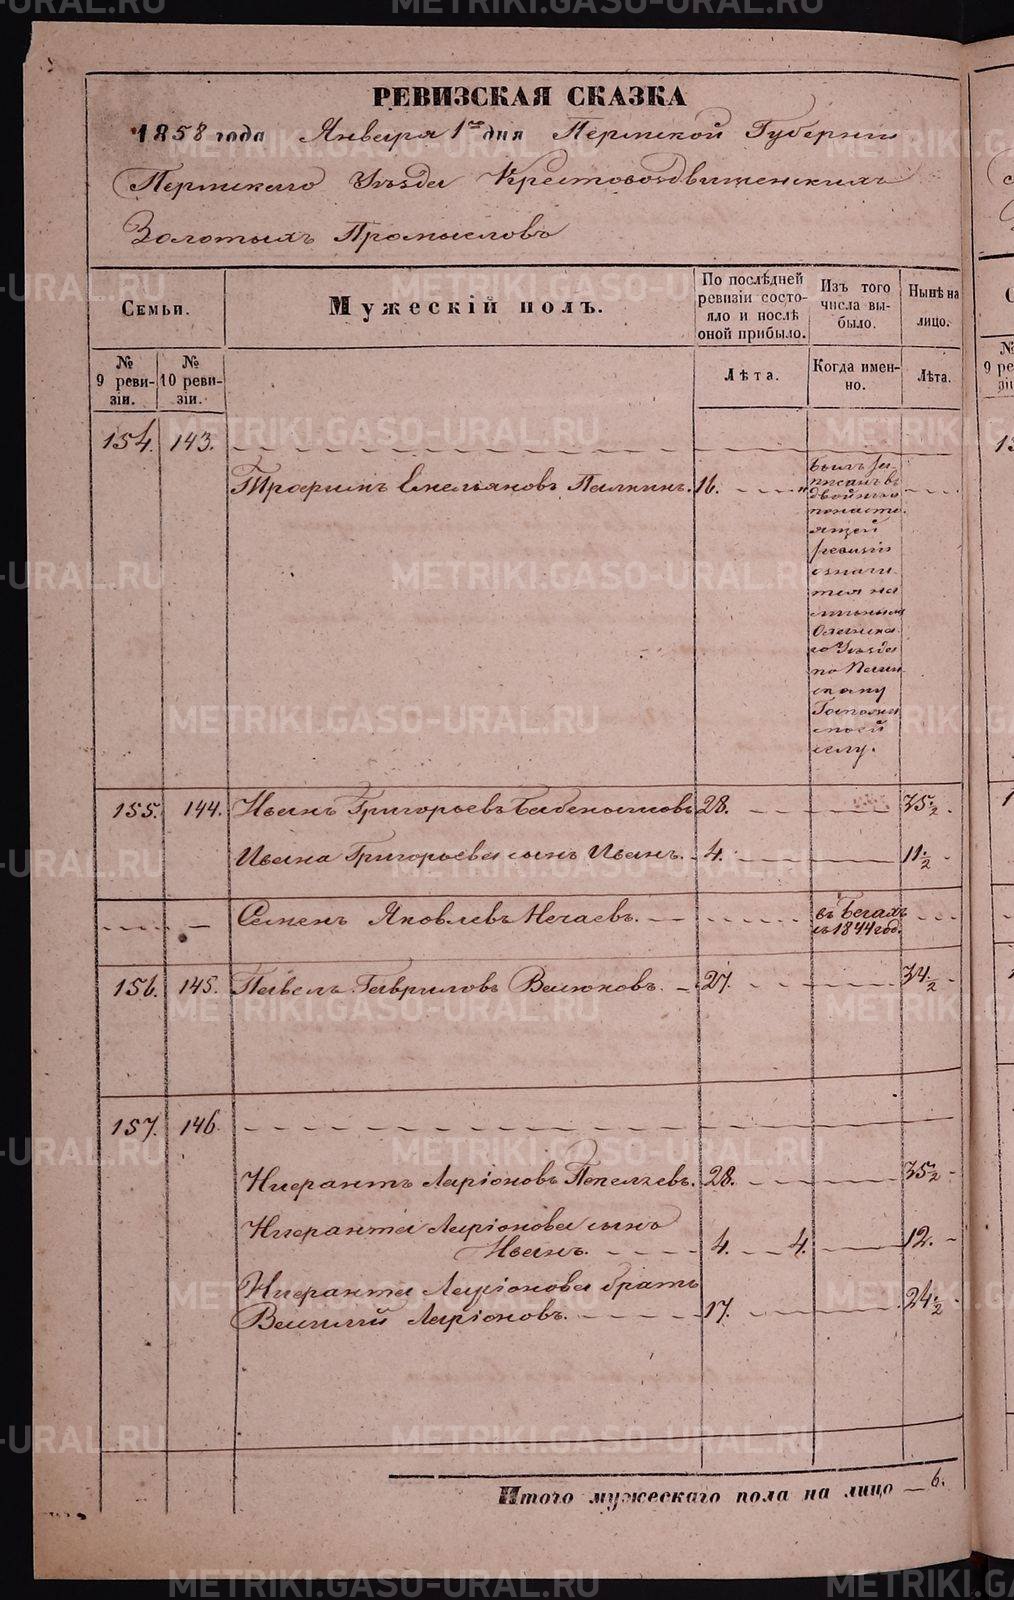 РЕВИЗСКАЯ СКАЗКА
1858 года Января 1го дня Пермской Губернии
Пермскаго Уѣзда Крестовоздвиженскихъ
Золотыхъ Промысловъ
Семьи.
Мужескій полъ.
По послѣдней
ревизіи состо-
яло и послѣ
оной прибыло.
Изъ того
числа вы-
было.
Нынѣ на
лицо.
№
9 реви-
зіи.
№
10 реви-
зіи.
Лѣта.
Когда имен-
но.
Лѣта.
154. 143.
Трофимъ Емельяновъ Палкинъ. 16.
былъ за
писанъ в
двойнѣ
по насто
ящей
ревизіи
значи
тся на
Уѣзда
по
селу.
155. 144. Иванъ Григорьевъ 28. 35 ½
Ивана Григорьева сынъ Иванъ. 4. 11 ½
Семенъ Яковлевъ Нечаевъ. въ бегахъ
съ 1844 год.
156. 145. Павелъ Гавриловъ Ваиюковъ. 27. 34 ½
157. 146.
Ниерантъ Ларіоновъ Пепеляевъ. 28. 35 ½
Ниеранта Ларіонова сынъ
Иванъ. 4. 4. 12.
Ниеранта Ларіонова братъ
Василий Ларіоновъ. 17. 24 ½
Итого мужескаго пола на лицо 6.
METRIKI.GASO-URAL.RU